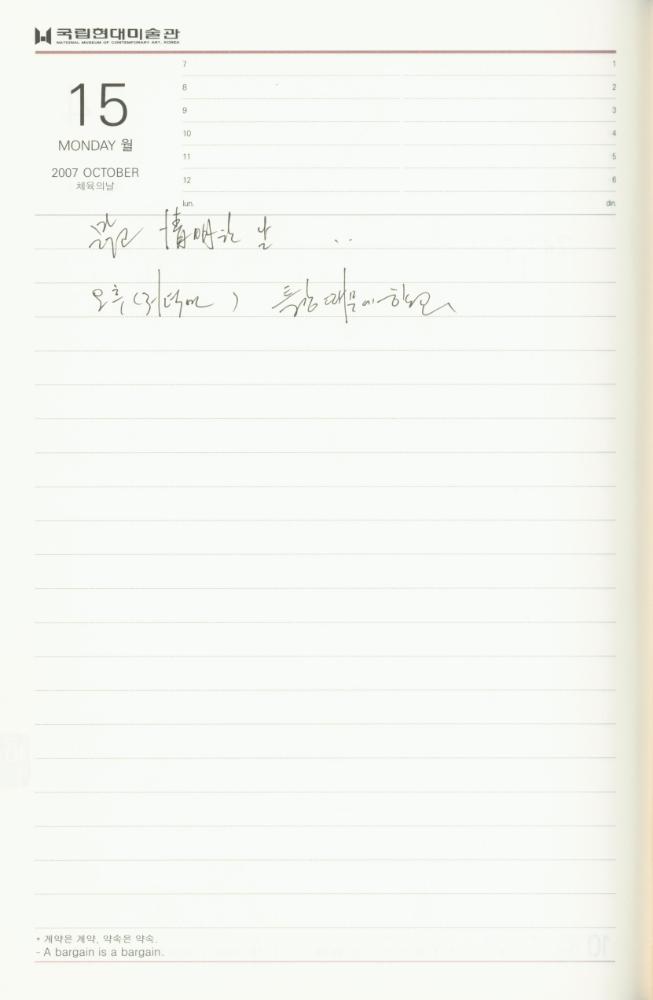 국립현대미술관
NATIONAL MUSEUM OF CONTEMPORARY ART, KOREA
15
MONDAY 월
2007 OCTOBER
체육의날
7 1
8 2
9 3
10 4
11 5
12 6
lun. din.
맑고 淸明한 날 ..
오후(저녁에) 특강 때문에
* 계약은 계약, 약속은 약속.
- A bargain is a bargain.